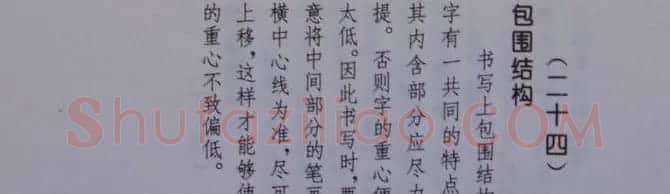 (二十四)
包围结构
书写上包围结构
字有一共同的特点
其内含部分应尽力
提。否则字的重心便
太低。因此书写时,要
意将中间部分的笔画
横中心线为准,尽可
上移,这样才能够使
的重心不致偏低。
Shufaziliao.com